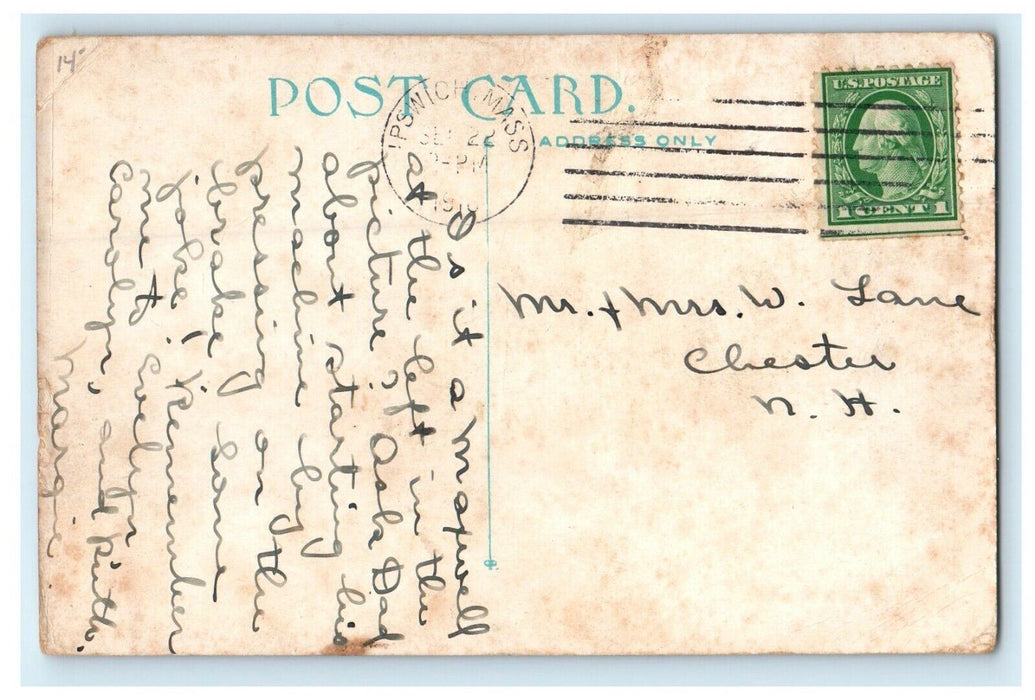 14
POST CARD.
ADDRESS ONLY
IPSWICH, MASS
SEP 22
-PM
U.S. POSTAGE
1 CENT 1
Is it a Maxwell
at the left in the
picture? Ask Dad
about starting his
machine by
pressing on the
brake some
joke! Remember
me to Evelyn
Carolyn, and Ruth.
Marie
Mr. & Mrs. W. Lane
Chester
N. H.